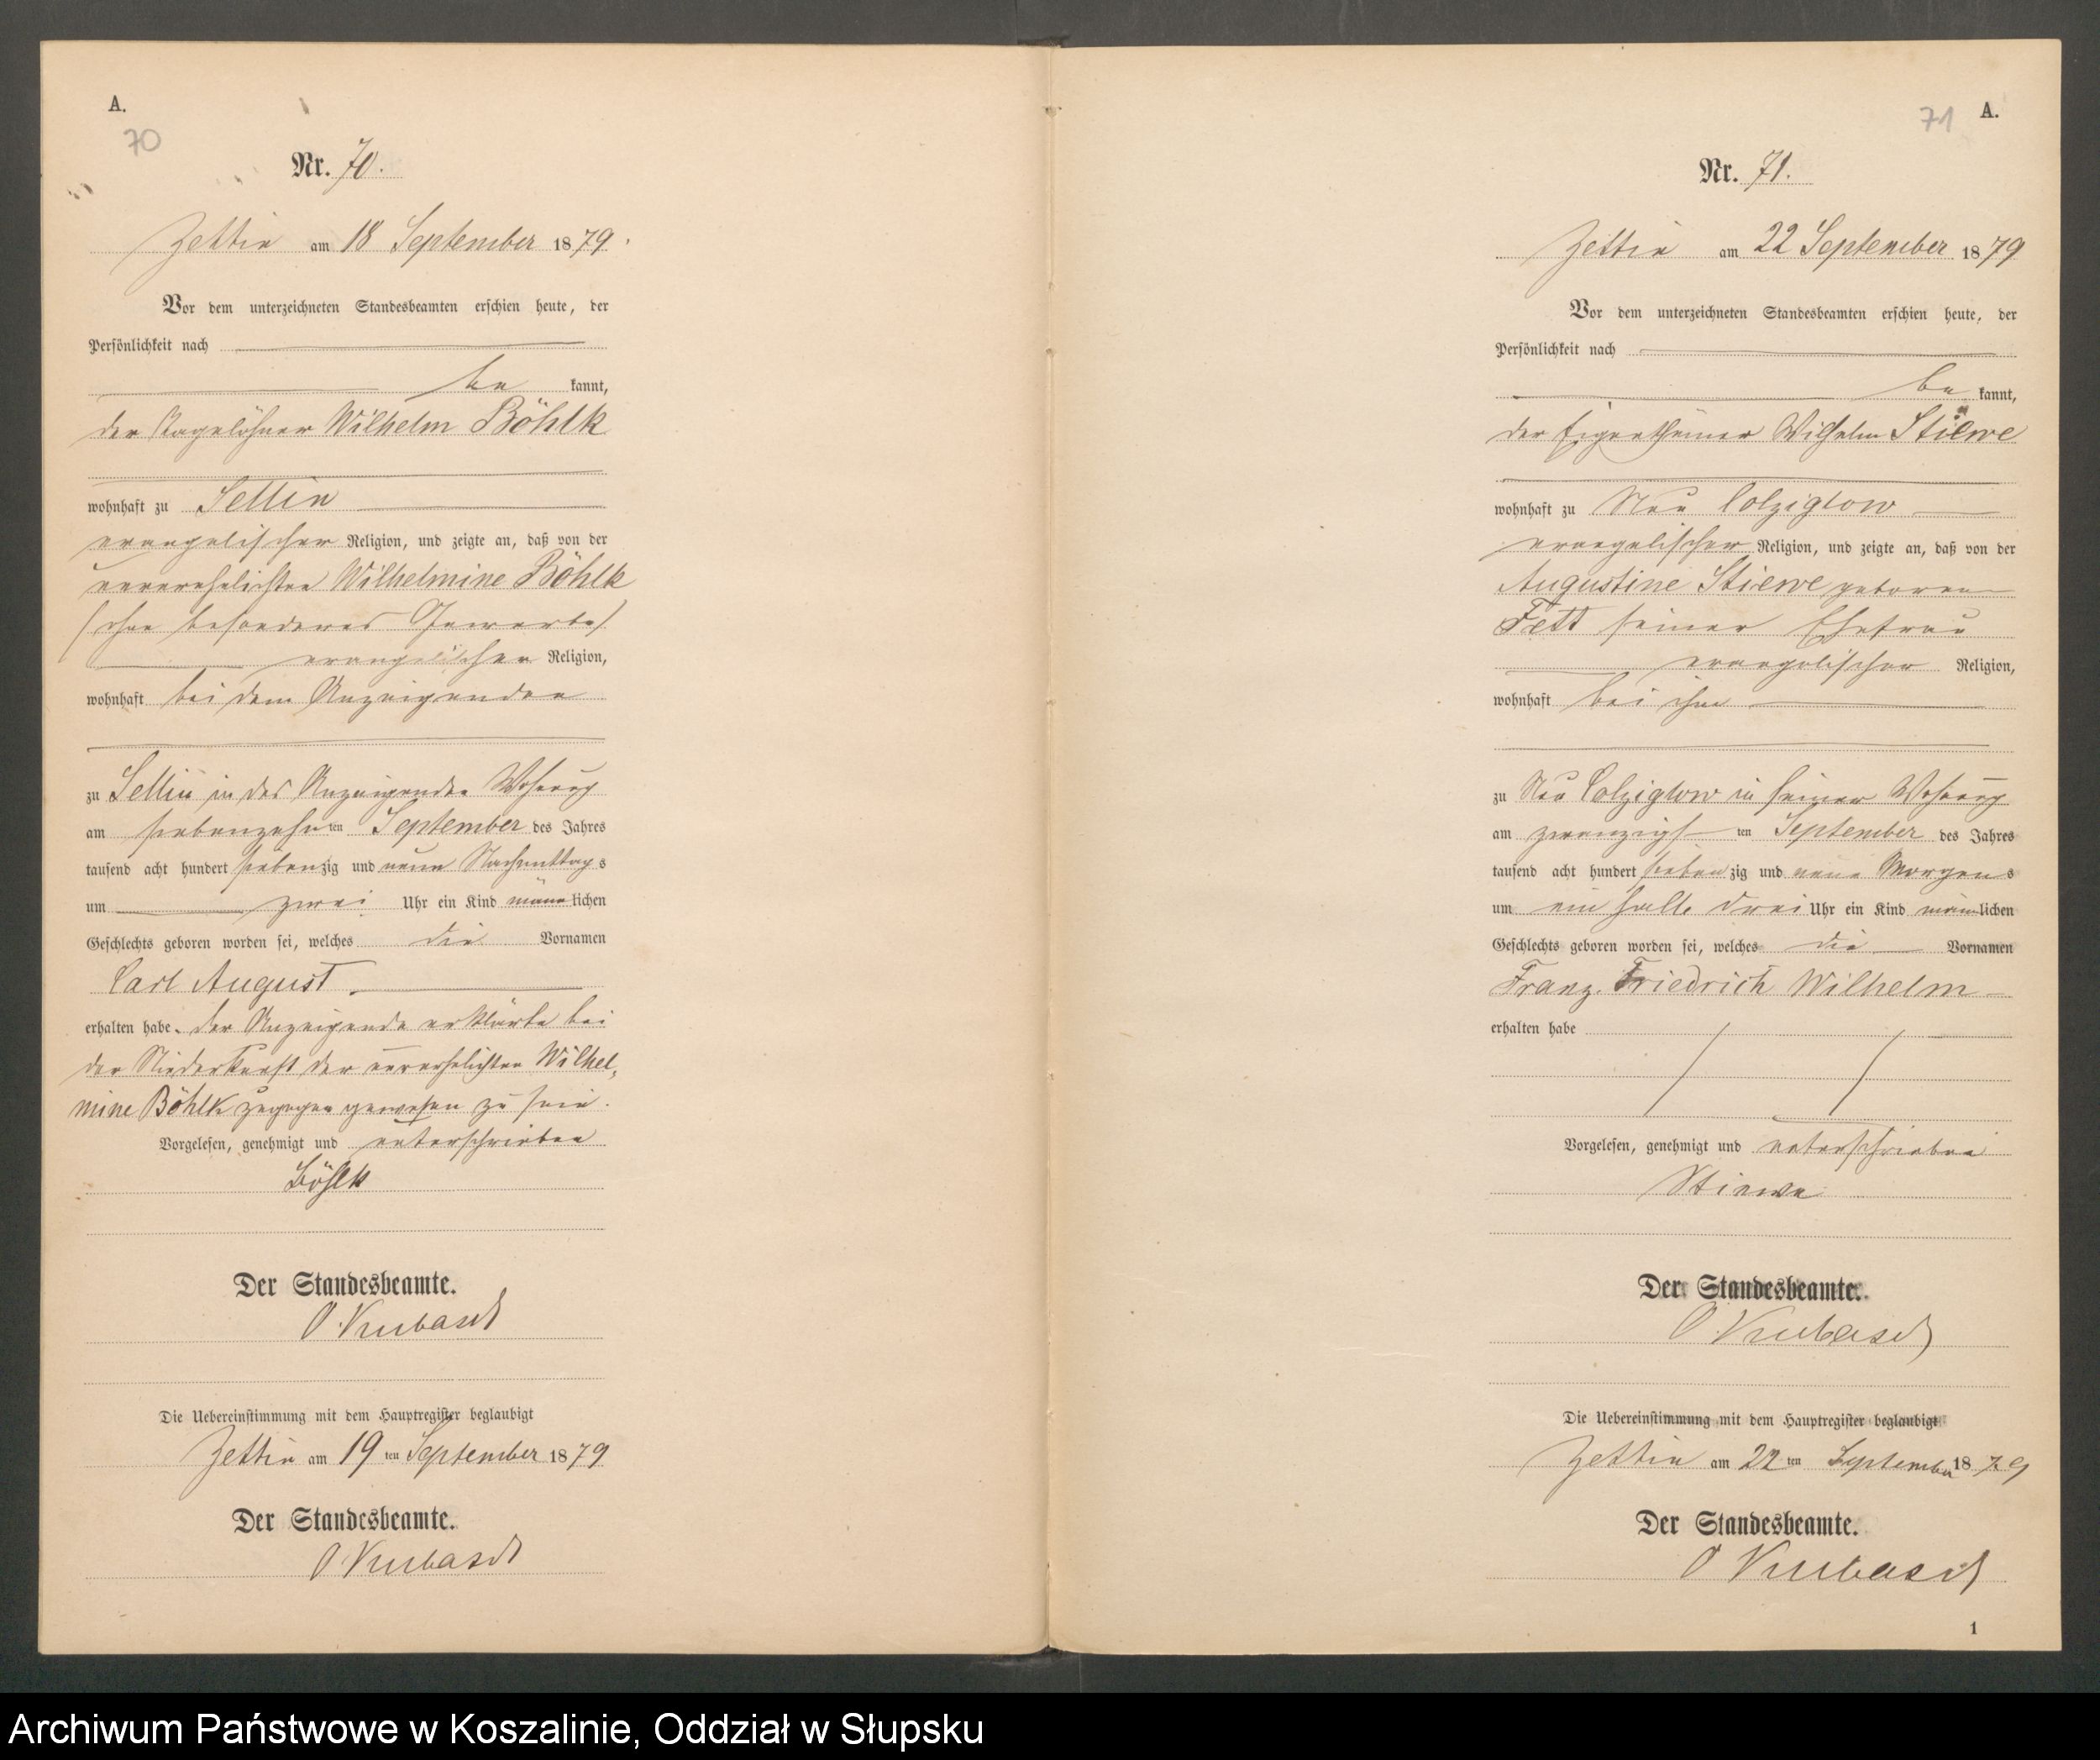 A.
70
Nr. 70.
Zettin am 18 September 1879.
Vor dem unterzeichneten Standesbeamten erschien heute, der
Persönlichkeit nach
be kannt,
der Tagelöhner Wilhelm Böhlk
wohnhaft zu Sellin
evangelischer Religion, und zeigte an, daß von der
unverehelichten Wilhelmine Böhlk
(ohne besonderes Gewerbe)
evangelischer Religion,
wohnhaft bei dem Anzeigenden
zu Sellin in des Anzeigenden Wohnung
am siebenzehn ten September des Jahres
tausend acht hundert siebenzig und neun Nachmittags
um zwei Uhr ein Kind männlichen
Geschlechts geboren worden sei, welches die Vornamen
Carl August
erhalten habe. Der Anzeigende erklärte bei
der Niederkunft der unverehelichten Wilhel-
mine Böhlk zugegen gewesen zu sein.
Vorgelesen, genehmigt und unterschrieben
Böhlk
Der Standesbeamte.
O. Kubasch
Die Uebereinstimmung mit dem Hauptregister beglaubigt
Zettin am 19 ten September 1879
Der Standesbeamte.
O Kubasch
71 A.
Nr. 71.
Zettin am 22 September 1879
Vor dem unterzeichneten Standesbeamten erschien heute, der
Persönlichkeit nach
be kannt,
der Eigenthümer Wilhelm Stiewe
wohnhaft zu Neu Colziglow
evangelischer Religion, und zeigte an, daß von der
Augustine Stiewe geborene
Fett seiner Ehefrau
evangelischer Religion,
wohnhaft bei ihm
zu Neu Colziglow in seiner Wohnung
am zwanzigs ten September des Jahres
tausend acht hundert siebenzig und neun Morgens
um ein halb drei Uhr ein Kind männlichen
Geschlechts geboren worden sei, welches die Vornamen
Franz Friedrich Wilhelm
erhalten habe
Vorgelesen, genehmigt und unterschrieben
Stiewe
Der Standesbeamte.
O. Kubasch
Die Uebereinstimmung mit dem Hauptregister beglaubigt
Zettin am 22 ten September 1879
Der Standesbeamte.
O Kubasch
1
Archiwum Państwowe w Koszalinie, Oddział w Słupsku